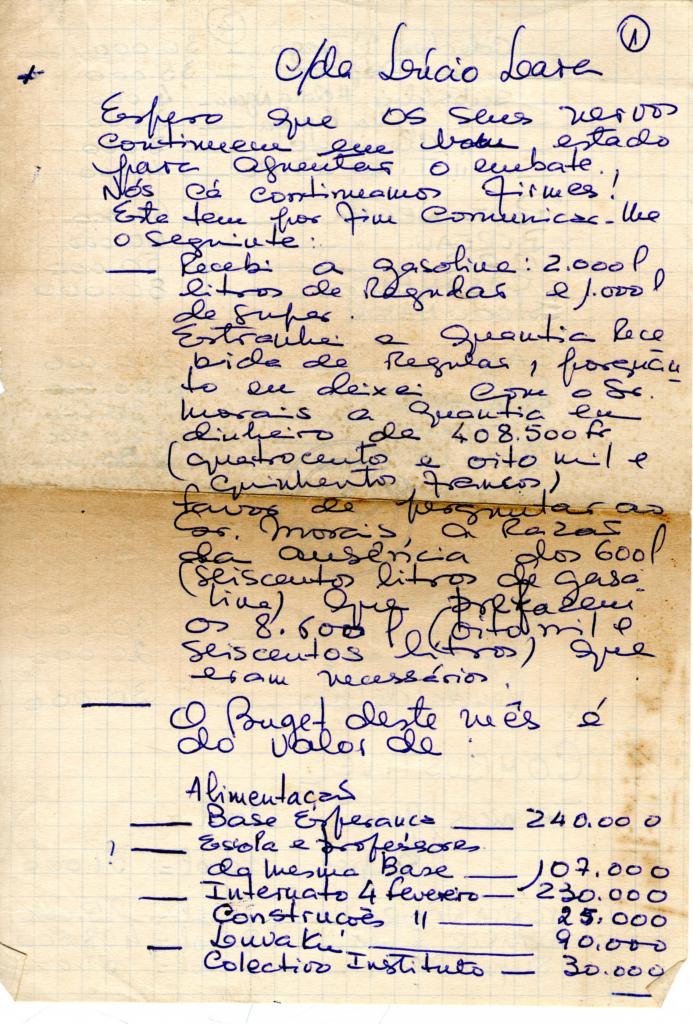 1
C/da Lúcio Lara
Espero que os seus nervos
continuem em bom estado
para aguentar o embate.
Nós cá continuamos firmes!
Este tem por fim comunicar-lhe
o seguinte:
— Recebi a gasolina: 2.000 l
litros de Regular e 1.000 l
de super.
Estranhei a quantia Rece
bida de Regular, porquan
to eu deixei com o Sr.
Morais a quantia em
dinheiro de 408.500 fr
(quatrocento e oito mil e
quinhentos francos)
favor de perguntar ao
Sr. Morais, a Razão
da ausência dos 600 l
(seiscentos litros de gaso
lina) que prefazem
os 8.600 l (oito mil e
seiscentos litros) que
eram necessários.
— O Buget deste mês é
do valor de:
Alimentação
— Base Esperança — 240.000
? — Escola e professores
da mesma Base — 107.000
— Internato 4 fevereiro — 230.000
Construções " — 25.000
— Louvakú — 90.000
Colectivo Instituto — 30.000